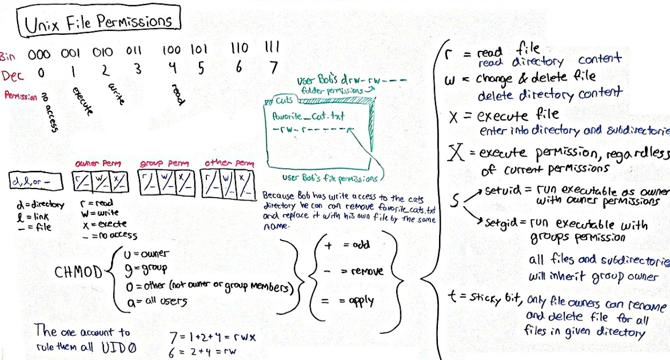 Unix File Permissions
Bin 000 001 010 011 100 101 110 111
Dec 0 1 2 3 4 5 6 7
Permission no access execute write read
user Bob's drw-rw----
folder permissions
cats
favorite_cat.txt
-rw-r------
user Bob's file permissions
owner perm group perm other perm
d,l,or- r/- w/- x/- r/- w/- x/- r/- w/- x/-
d=directory
l=link
-=file
r=read
w=write
x=execte
-=no access
Because Bob has write access to the cats
directory he can can remove favorite_cats.txt
and replace it with his own file by the same
name.
CHMOD
u=owner
g=group
o=other (not owner or group members)
a=all users
+ = add
- = remove
= = apply
r = read file
read directory content
w = change & delete file
delete directory content
x = execute file
enter into directory and subdirectories
X = execute permission, regardless
of current permissions
s
setuid = run executable as owner
with owner permissions
setgid = run executable with
groups permission
all files and subdirectories
will inherit group owner
t = sticky bit, only file owners can rename
and delete file for all
files in given directory
The one account to
rule them all UID0
7=1+2+4=rwx
6=2+4=rw